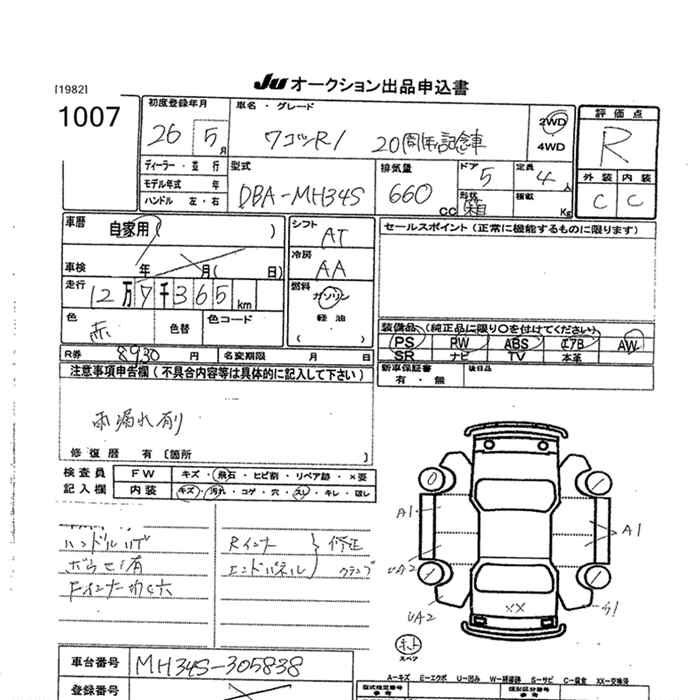 [1982]
Ju オークション出品申込書
1007
初度登録年月
26 5月
車名・グレード
ワゴンR 20周年記念車
2WD
4WD
評価点
R
外装 内装
C C
ディーラー・並行
モデル年式 年
ハンドル 左・右
型式
DBA-MH34S
排気量
660 CC
ドア
5
形状
箱
定員
4人
積載
Kg
車歴
自家用( )
車検 年 月( 日)
走行
12万7千365 km
色
赤
色替
色コード
シフト
AT
冷房
AA
燃料
ガソリン
軽油
( )
セールスポイント(正常に機能するものに限ります)
装備品(純正品に限り○を付けてください)
PS PW ABS エアB AW
SR ナビ TV 本革
新車保証書
有・無
後日品
R券 8930 円
名変期限 月 日
注意事項申告欄(不具合内容等は具体的に記入して下さい)
雨漏れ有り
修復歴 有〔箇所
検査員
記入欄
FW キズ・飛石・ヒビ割・リペア跡・×要
内装 キズ・汚れ・コゲ・穴・スレ・キレ・ほし
ハンドルハゲ
Rインナー
エンドパネル
修正
A1
A1
UA2
UA2
XX
スペア
車台番号
MH34S-305838
登録番号
A-キズ E-エクボ U-凹み S-サビ XX-交換済